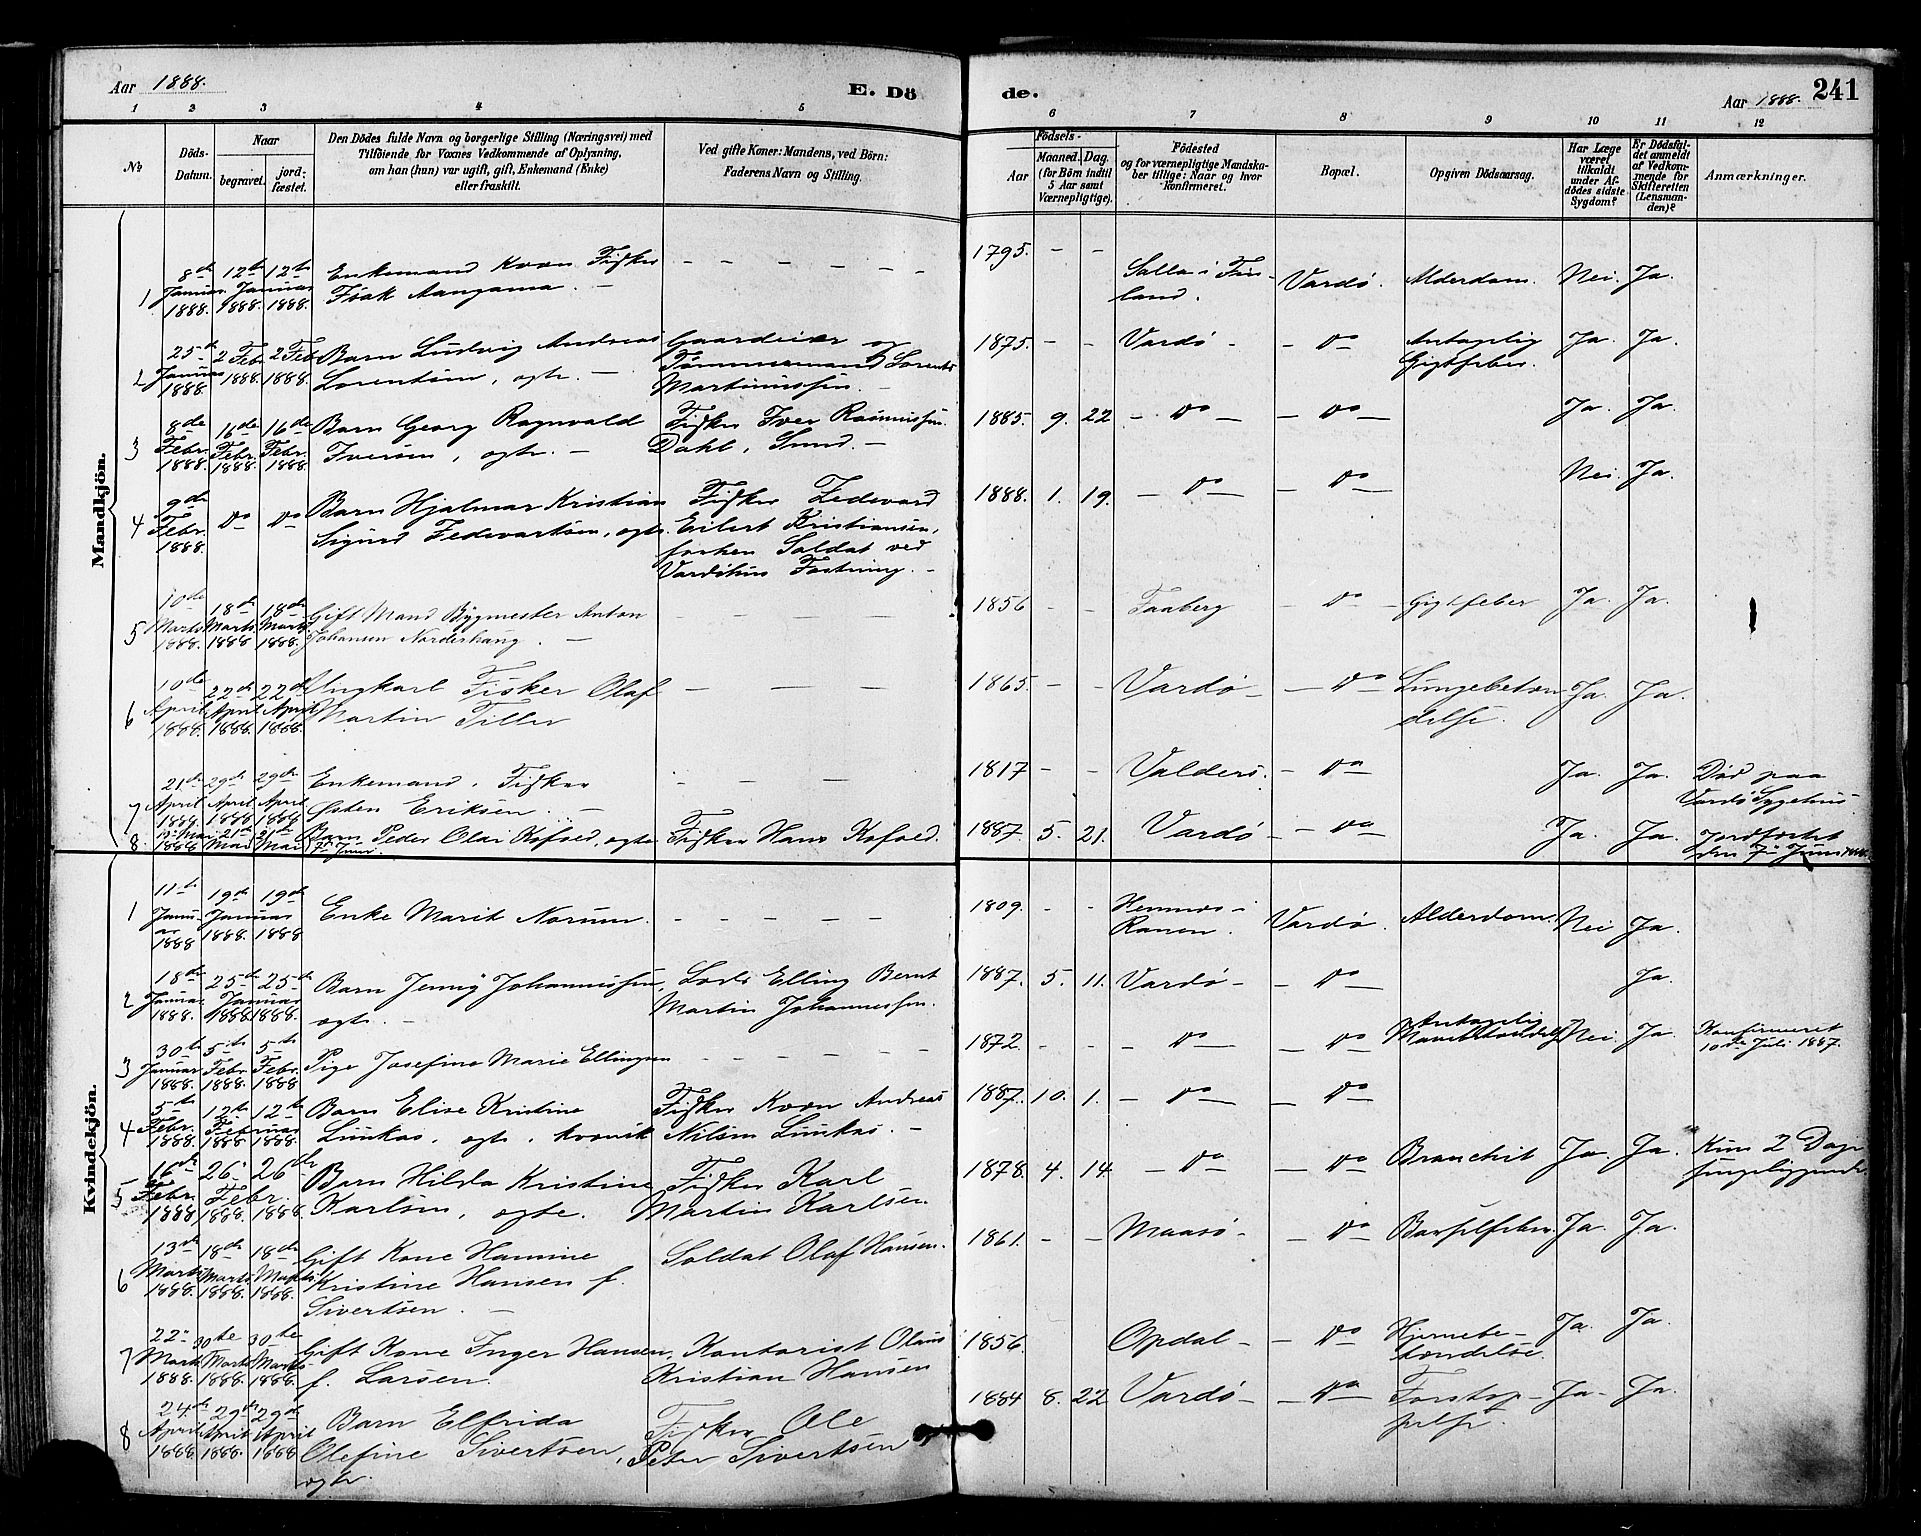 Aar 1888.
E. Dö
de.
Aar 1888.
241
1 2 3 4 5 6 7 8 9 10 11 12
No
Döds-Datum.
Naar
begravet.
jord-fæstet.
Den Dödes fulde Navn og borgerlige Stilling (Næringsvei) med
Tilföiende for Voxnes Vedkommende af Oplysning,
om han (hun) var ugift, gift, Enkemand (Enke)
eller fraskilt.
Ved gifte Koner: Mandens, ved Börn:
Faderens Navn og Stilling.
Födsels-
Aar
Maaned. Dag.
(for Börn indtil
5 Aar samt
Værnepligtige).
Födested
og for værnepligtige Mandska-
ber tillige: Naar og hvor
konfirmeret.
Bopæl.
Opgiven Dödsaarsag.
Har Læge
været
tilkaldt
under Af-
dödes sidste
Sygdom?
Er Dödsfal-
det anmeldt
af Vedkom-
mende for
Skifteretten
(Lensman-
den)?
Anmærkninger.
Mandkjön.
1 8de Januar 1888. 12te Januar 1888. 12te Januar 1888. Enkemand Kvæn Fisker – – – 1795. – – Salla i Fin-
land. Vardø. Alderdom. Nei. Ja.
2 25de Januar 1888. 2 Febr 1888. 2 Febr 1888. Barn Ludvig Andreas
Lorentsen, ogte. – Gaardeier og
Tømmermand Lorents
Martinussen. – 1875. – – Vardø – – Do Antagelig
Gigtfeber Ja. Ja.
3 8de Febr. 1888. 16de Febr. 1888. 16de Febr. 1888. Barn Georg Ragnvald
Iversen, ogte. – Fisker Iver Rasmussen
Dahl, Smed. – 1885. 9. 22 – Do – – Do – Ja. Ja.
4 9de Febr. 1888. Do Do Barn Hjalmar Kristian
Sigurd Fedevartsen, ogte. Fisker Fedevard
Eilert Kristiansen,
forhen Soldat ved
Vardöhus Fæstning. – 1888. 1. 19. – Do – – Do – Nei. Ja.
5 10de Marts 1888. 18de Marts 1888 18de Marts 1888. Gift Mand Bygmester Anton
Johansen Norderhaug. – – – – 1856 – – Faaberg – Do – Gigtfeber Ja. Ja.
6 10de April 1888. 22de April 1888. 22de April 1888. Ungkarl Fisker Olaf
Martin Tiller – – – 1865. – – Vardø – – Do Lungebetæn
delse. Ja. Ja.
7 21de April 1888. 29de April 1888 29de April 1888 Enkemand, Fisker
Østen Eriksen. – – – – 1817 – – Valders. – Do – Ja. Ja. Død paa
Vardø Sygehus
8. Mai 1888 21de Mai 21de Mai Barn Peder Olai Kofoed, ogte Fisker Hans Kofoed. 1887. 5. 21. Vardø – Do – Ja. Ja. Jordfæstet
den 7de Juni 1888.
7de Juni.
Kvindekjön.
1 11te Janu-
ar 1888 19de Januar 1888. 19de Januar 1888 Enke Marit Norum. – – – 1809. – – Hemnes i
Ranen. Vardø. Alderdom. Nei Ja.
2 18de Januar 1888. 25de Januar 1888. 25de Januar 1888. Barn Jenny Johannessen,
ogte. – Lods Elling Bernt
Martin Johannessen. 1887. 5. 11. Vardø – – Do – Ja.
3 30te Januar 1888. 5te Febr. 1888. 5te Febr. 1888. Pige Josefine Marie Ellingsen – – – 1872. – – Do – Do Antagelig
Nei. Ja. Konfirmeret
10de Juli 1887.
4 5te Febr. 1888. 12te Februar 1888. 12te 1888. Barn Elise Kristine
Linkas, ogte, kvænsk Fisker Kvæn Andreas
Nilsen Linkas. – 1887. 10. 1. – Do – – Do –
5 16de Febr. 1888 26de Febr. 1888. 26de 1888. Barn Hilda Kristine
Karlsen, ogte. Fisker Karl
Martin Karlsen. 1878. 4. 14. – Do – – Do Bronchit Ja. Ja. Kun 2 Dage
sengeliggende.
6 13de Marts 1888. 18de Marts 1888. 18de Marts 1888. Gift Kone Hannine
Kristine Hansen f.
Sivertsen. – Soldat Olaf Hansen. 1861. – – Maasø – – Do Barselfeber. Ja. Ja.
7 22de Marts 1888. 30te Marts 1888. 30te Marts 1888. Gift Kone Inger Hansen,
f. Larsen. Kontorist Olaus
Kristian Hansen 1856. Opdal – – Do Hjernebe-
tændelse. Ja. Ja.
8 24de April 1888. 29de April 1888. 29de April 1888. Barn Elfrida
Olefine Sivertsen,
ogte. Fisker Ole
Peter Sivertsen 1884 8. 22 Vardø – – Do Forstop-
pelse. Ja – Ja.